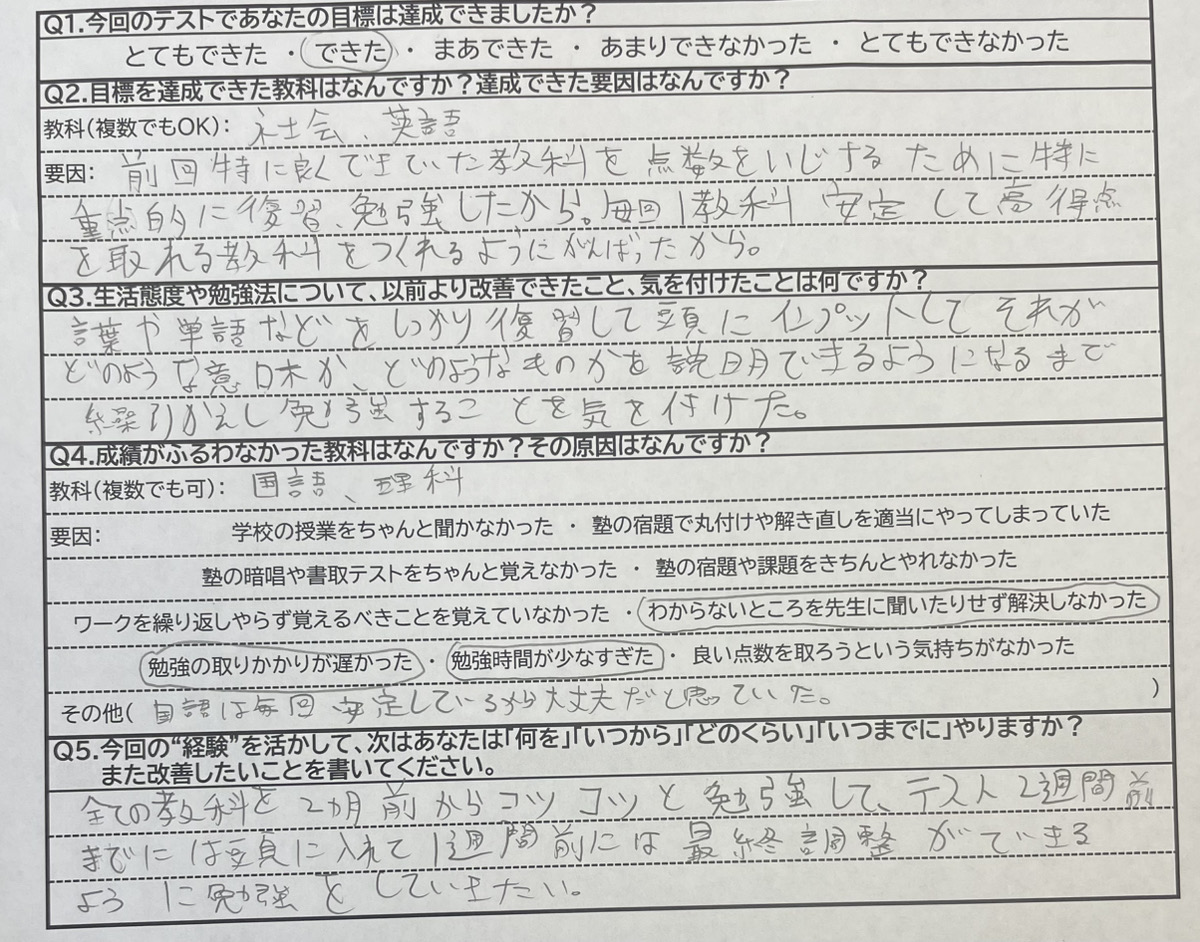 Q1.今回のテストであなたの目標は達成できましたか？
とてもできた ・ できた ・ まあできた ・ あまりできなかった ・ とてもできなかった
Q2.目標を達成できた教科はなんですか？達成できた要因はなんですか？
教科(複数でもOK)： 社会、英語
要因： 前回特に良くできていた教科を点数をいじするために特に
重点的に復習、勉強したから。毎回1教科安定して高得点
を取れる教科をつくれるようにがんばったから。
Q3.生活態度や勉強法について、以前より改善できたこと、気を付けたことは何ですか？
言葉や単語などをしっかり復習して頭にインプットしてそれが
どのような意味か、どのようなものかを説明できるようになるまで
繰りかえし勉強することを気を付けた。
Q4.成績がふるわなかった教科はなんですか？その原因はなんですか？
教科(複数でも可)： 国語、理科
要因： 学校の授業をちゃんと聞かなかった ・ 塾の宿題で丸付けや解き直しを適当にやってしまっていた
塾の暗唱や書取テストをちゃんと覚えなかった ・ 塾の宿題や課題をきちんとやれなかった
ワークを繰り返しやらず覚えるべきことを覚えていなかった ・ わからないところを先生に聞いたりせず解決しなかった
勉強の取りかかりが遅かった ・ 勉強時間が少なすぎた ・ 良い点数を取ろうという気持ちがなかった
その他( 国語は毎回安定しているから大丈夫だと思っていた。 )
Q5.今回の“経験”を活かして、次はあなたは｢何を｣｢いつから｣｢どのくらい｣｢いつまでに｣やりますか？
また改善したいことを書いてください。
全ての教科を2カ月前からコツコツと勉強して、テスト2週間前
までには頭に入れて1週間前には最終調整ができる
ように勉強をしていきたい。